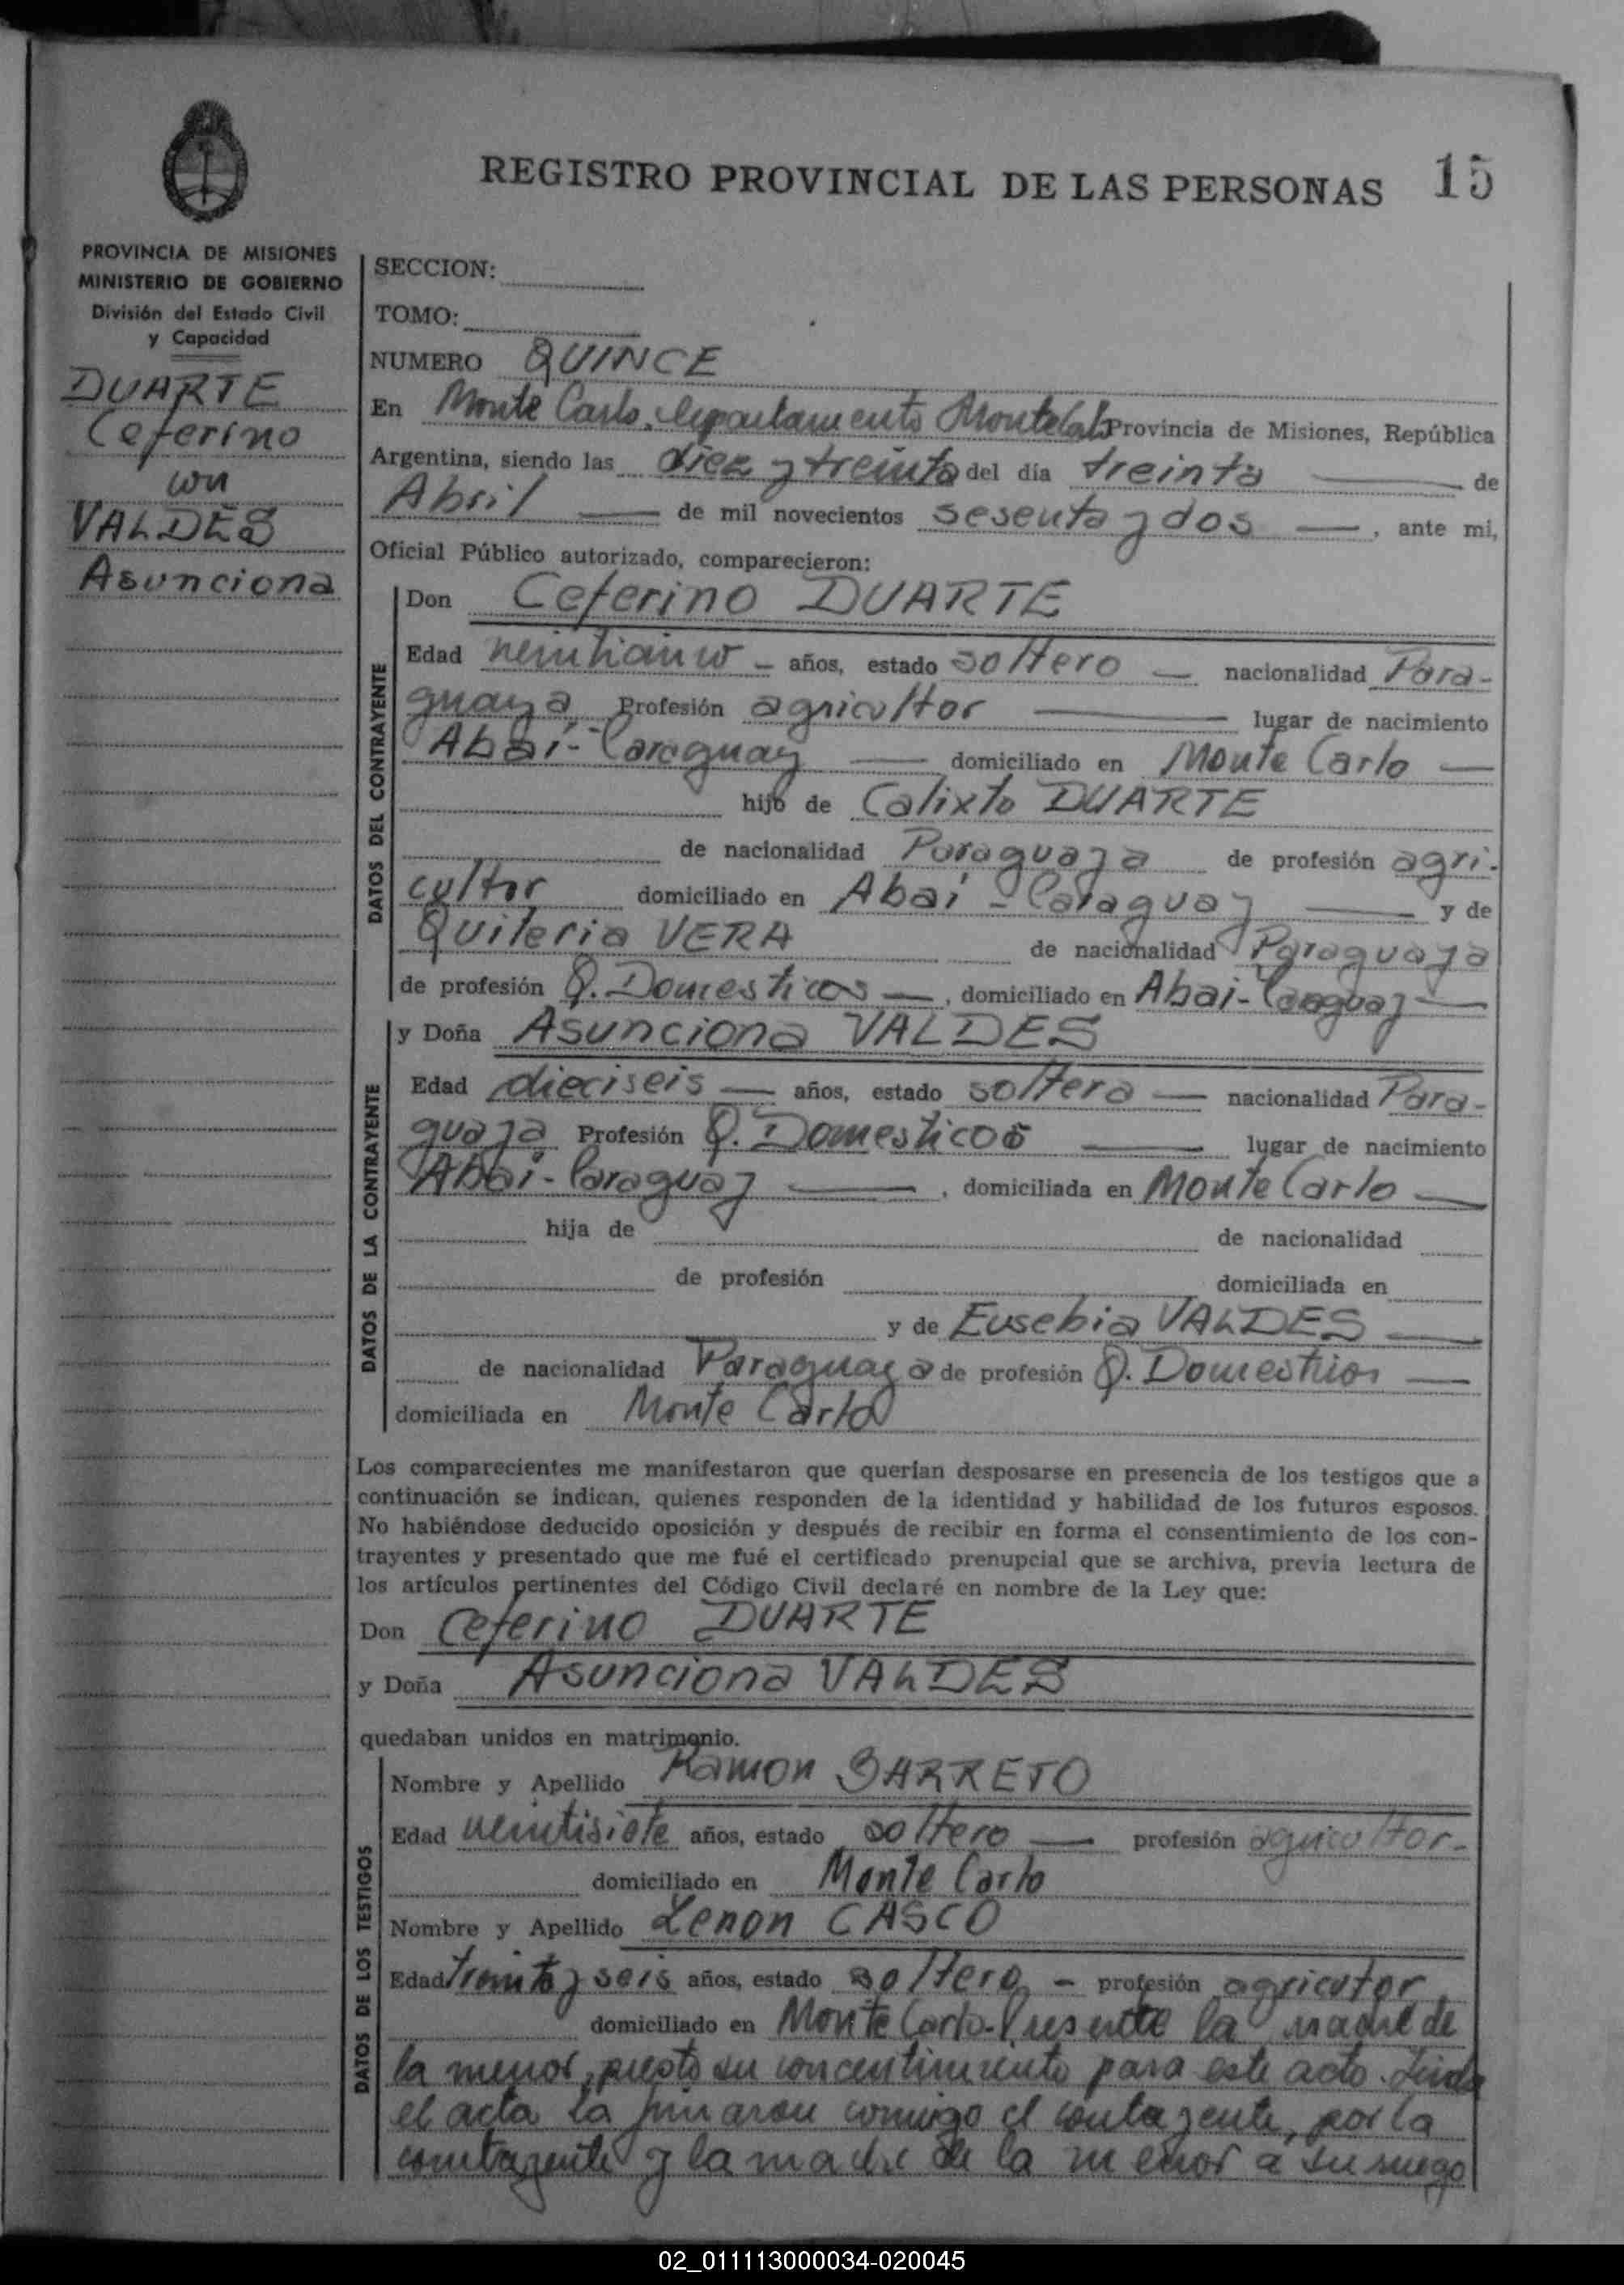 REGISTRO PROVINCIAL DE LAS PERSONAS 15
PROVINCIA DE MISIONES
MINISTERIO DE GOBIERNO
División del Estado Civil
y Capacidad
DUARTE
Ceferino
con
VALDES
Asunciona
SECCION:
TOMO:
NUMERO QUINCE
En Monte Carlo, departamento Monte Carlo Provincia de Misiones, República
Argentina, siendo las diez y treinta del día treinta de
Abril de mil novecientos sesenta y dos, ante mi,
Oficial Público autorizado, comparecieron:
DATOS DEL CONTRAYENTE
Don Ceferino DUARTE
Edad años, estado soltero nacionalidad Para-
guaya Profesión agricultor lugar de nacimiento
Abaí-Paraguay domiciliado en Monte Carlo
hijo de Calixto DUARTE
de nacionalidad Paraguaya de profesión agri-
cultor domiciliado en Abaí-Paraguay y de
Quiteria VERA de nacionalidad Paraguaya
de profesión Q. Domesticos, domiciliado en Abai-Paraguay
DATOS DE LA CONTRAYENTE
y Doña Asunciona VALDES
Edad dieciseis años, estado soltera nacionalidad Para-
guaya Profesión Q. Domesticos lugar de nacimiento
Abai-Paraguay, domiciliada en Monte Carlo
hija de de nacionalidad
de profesión domiciliada en
y de Eusebia VALDES
de nacionalidad Paraguaya de profesión Q. Domesticos
domiciliada en Monte Carlo
Los comparecientes me manifestaron que querían desposarse en presencia de los testigos que a
continuación se indican, quienes responden de la identidad y habilidad de los futuros esposos.
No habiéndose deducido oposición y después de recibir en forma el consentimiento de los con-
trayentes y presentado que me fué el certificado prenupcial que se archiva, previa lectura de
los artículos pertinentes del Código Civil declaré en nombre de la Ley que:
Don Ceferino DUARTE
y Doña Asunciona VALDES
quedaban unidos en matrimonio.
DATOS DE LOS TESTIGOS
Nombre y Apellido Ramon BARRETO
Edad veintisiete años, estado soltero profesión agricultor-
domiciliado en Monte Carlo
Nombre y Apellido Zenon CASCO
Edad treinta y seis años, estado soltero - profesión agricutor
domiciliado en Monte Carlo. Presente la madre de
la menor, presto su concentimiento para este acto. Leida
el acta la firmaron conmigo el contayente, por la
contrayente y la madre de la menor a su ruego
02_011113000034-020045